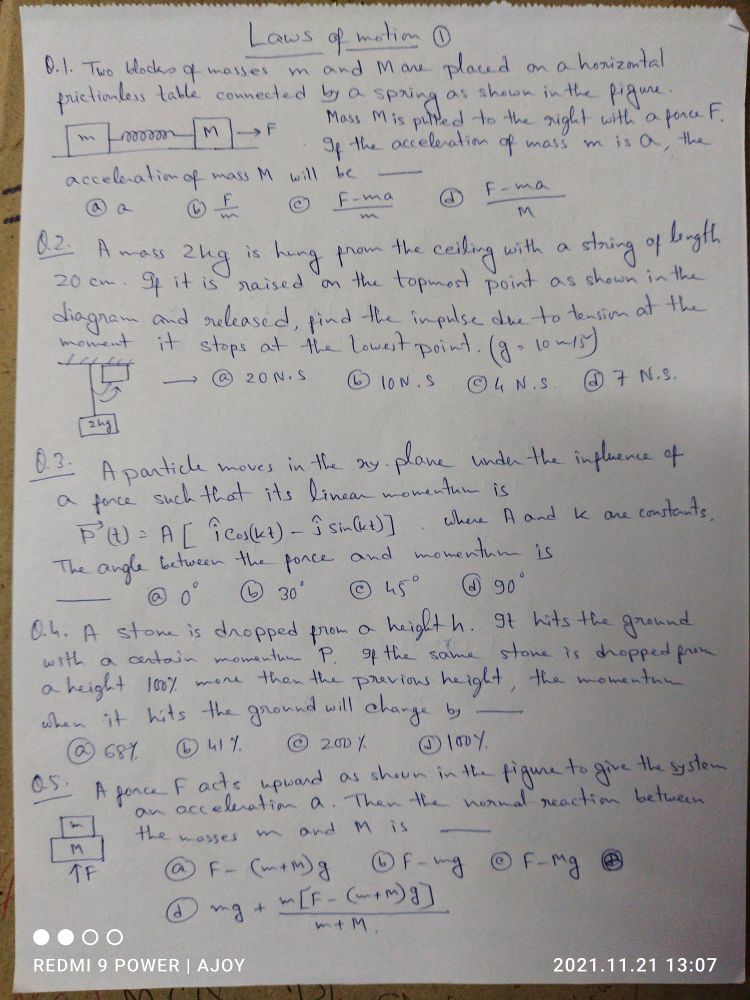 Laws of motion ①
Q.1. Two blocks of masses m and M are placed on a horizontal
frictionless table connected by a spring as shown in the figure.
m M → F Mass M is pulled to the right with a force F.
If the acceleration of mass m is a, the
acceleration of mass M will be ____
ⓐ a ⓑ F/m ⓒ F-ma/m ⓓ F-ma/M
Q.2. A mass 2kg is hung from the ceiling with a string of length
20 cm. If it is raised on the topmost point as shown in the
diagram and released, find the impulse due to tension at the
moment it stops at the lowest point. (g = 10 m/s²)
→ ⓐ 20 N.S ⓑ 10 N.S ⓒ 4 N.S. ⓓ 7 N.S.
2kg
Q.3. A particle moves in the xy. plane under the influence of
a force such that its linear momentum is
P⃗(t) = A [ î cos(kt) - ĵ sin(kt)] . where A and K are constants.
The angle between the force and momentum is
____ ⓐ 0° ⓑ 30° ⓒ 45° ⓓ 90°
Q.4. A stone is dropped from a height h. It hits the ground
with a certain momentum P. If the same stone is dropped from
a height 100% more than the previous height, the momentum
when it hits the ground will change by ____
ⓐ 68% ⓑ 41% ⓒ 200% ⓓ 100%
Q.5. A force F acts upward as shown in the figure to give the system
an acceleration a. Then the normal reaction between
m the masses m and M is ____
M
↑F ⓐ F - (m+M)g ⓑ F - mg ⓒ F - Mg
ⓓ mg + m[F - (m+M)g]/m+M.
REDMI 9 POWER | AJOY 2021.11.21 13:07